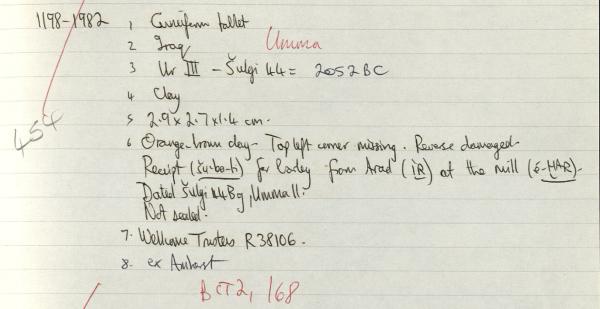 1198-1982 1 Cuneiform tablet
2 Iraq Umma
3 Ur III - Šulgi 44 = 2052 BC
4 Clay
5 2.9 x 2.7 x 1.4 cm.
6 Orange-brown clay - Top left corner missing. Reverse damaged.
454
Receipt (šu-ba-ti) for barley from Arad (ÌR) at the mill (é-HAR).
Dated Šulgi 44 Umma
Not sealed.
7. Wellcome Trustees R38106.
8. ex Amherst
BCT2, 168